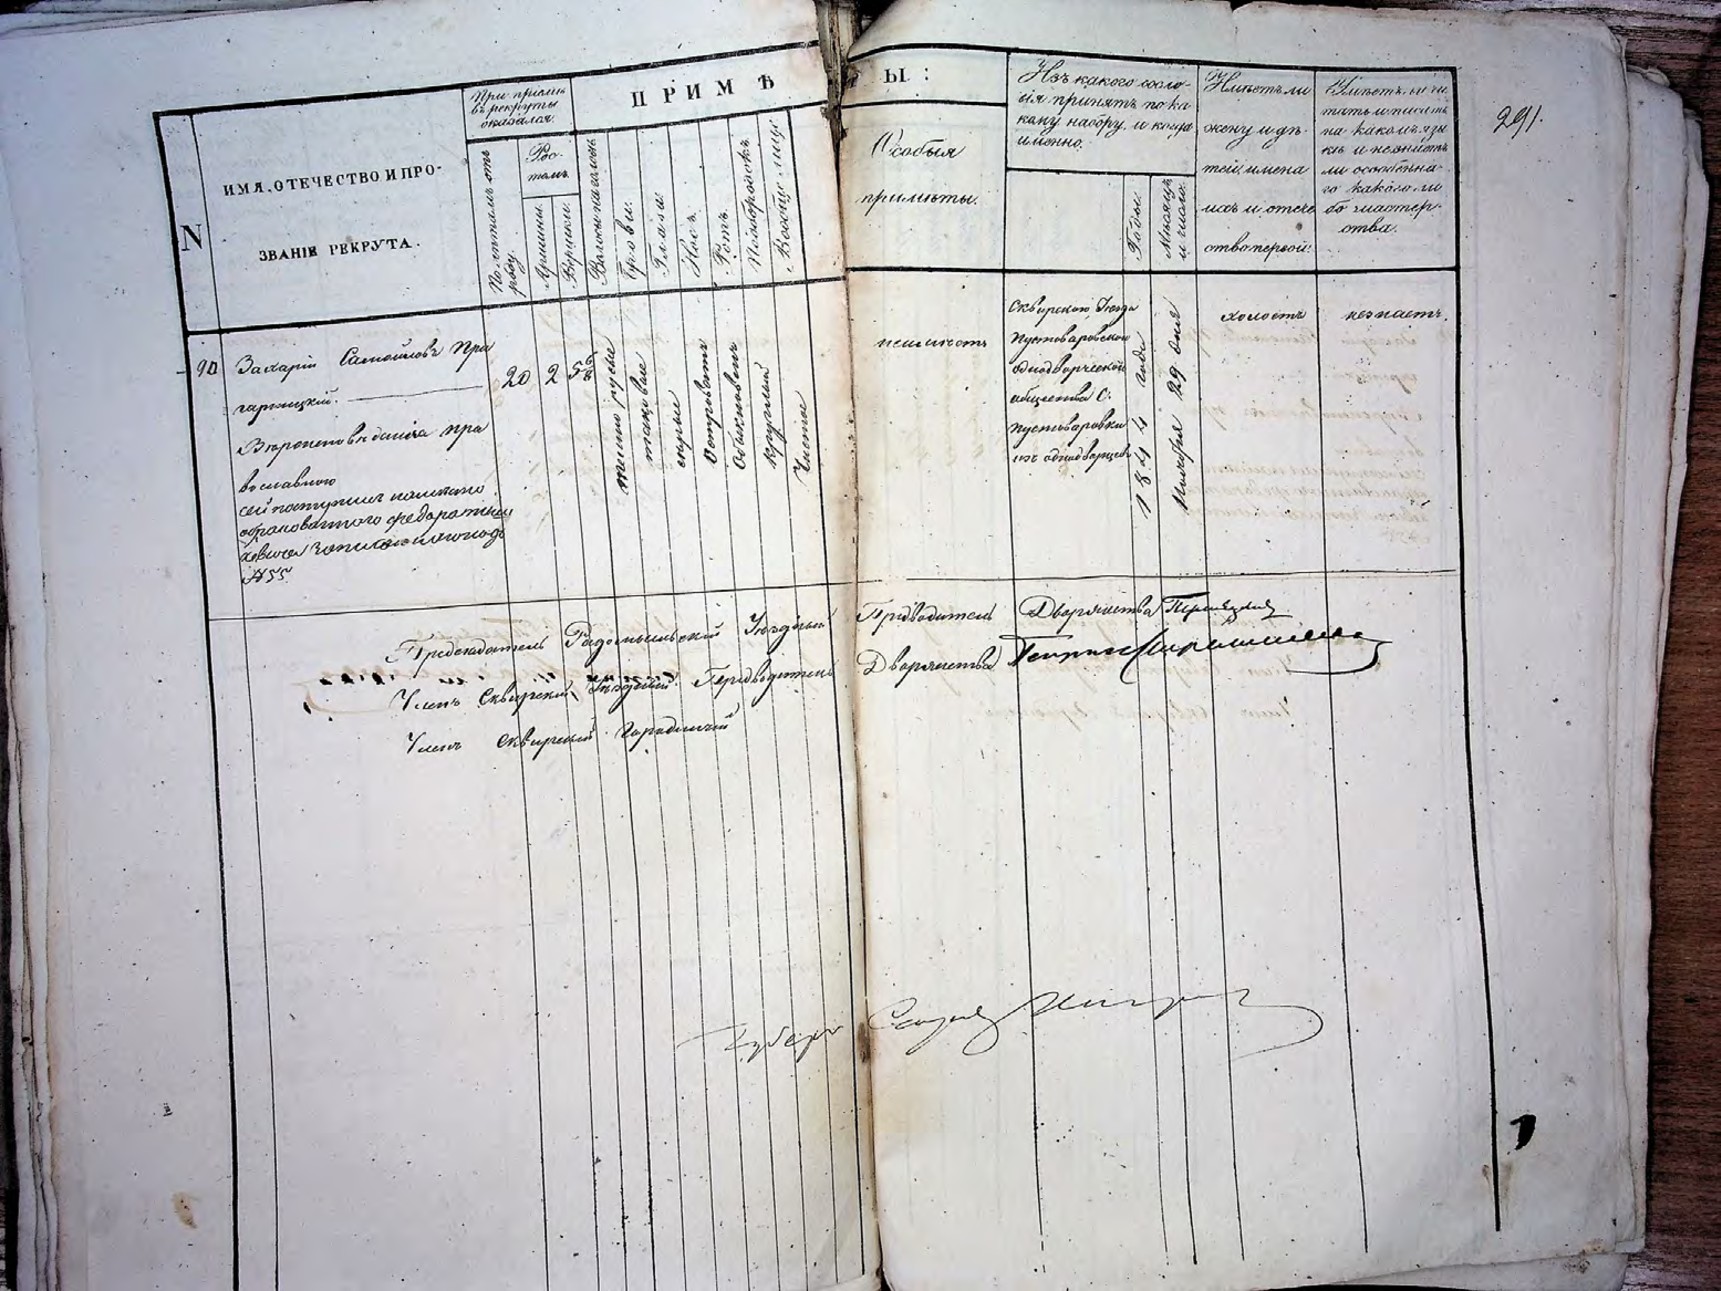 291.
N
ИМЯ, ОТЕЧЕСТВО И ПРО-
ЗВАНІЕ РЕКРУТА.
При пріемѣ
въ рекруты
оказался.
По лѣтамъ отъ
роду.
Рос-
томъ.
Аршины.
Вершки.
ПРИМѢ
Ы:
Волосы на головѣ
Брови.
Глаза.
Носъ.
Ротъ.
Подбородокъ
Вообще лице
Особыя
примѣты.
Изъ какого сосло-
вія принятъ по ка
кому набору, и когда
именно.
Годы.
Мѣсяцъ
и число.
Имѣетъ ли
жену и дѣ-
тей, имена
ихъ и отече
ство первой.
Умѣетъ ли чи
тать и писать
на какомъ язы
кѣ и не знаетъ
ли особенна-
го какого ли
бо мастер-
ства.
90
Захарій Самойловъ Пра
Вѣроисповѣданія пра
вославного
сей поступилъ
обракованного
№ 55.
20
2
5
темно русые
таковые
сѣрые
островатъ
обыкновен
круглый
чистое
неимѣетъ
Сквирского Уѣзда
Пустоваровского
однодворческого
общества С.
Пустоваровки
изъ однодворцевъ
1844 года
Ноября 29 дня
холостъ
незнаетъ.
Предсѣдатель Радомысльскій Уѣздный Предводитель Дворянства
Членъ Сквирскій Уѣздный Предводитель Дворянства
Членъ Сквирскій Городничій